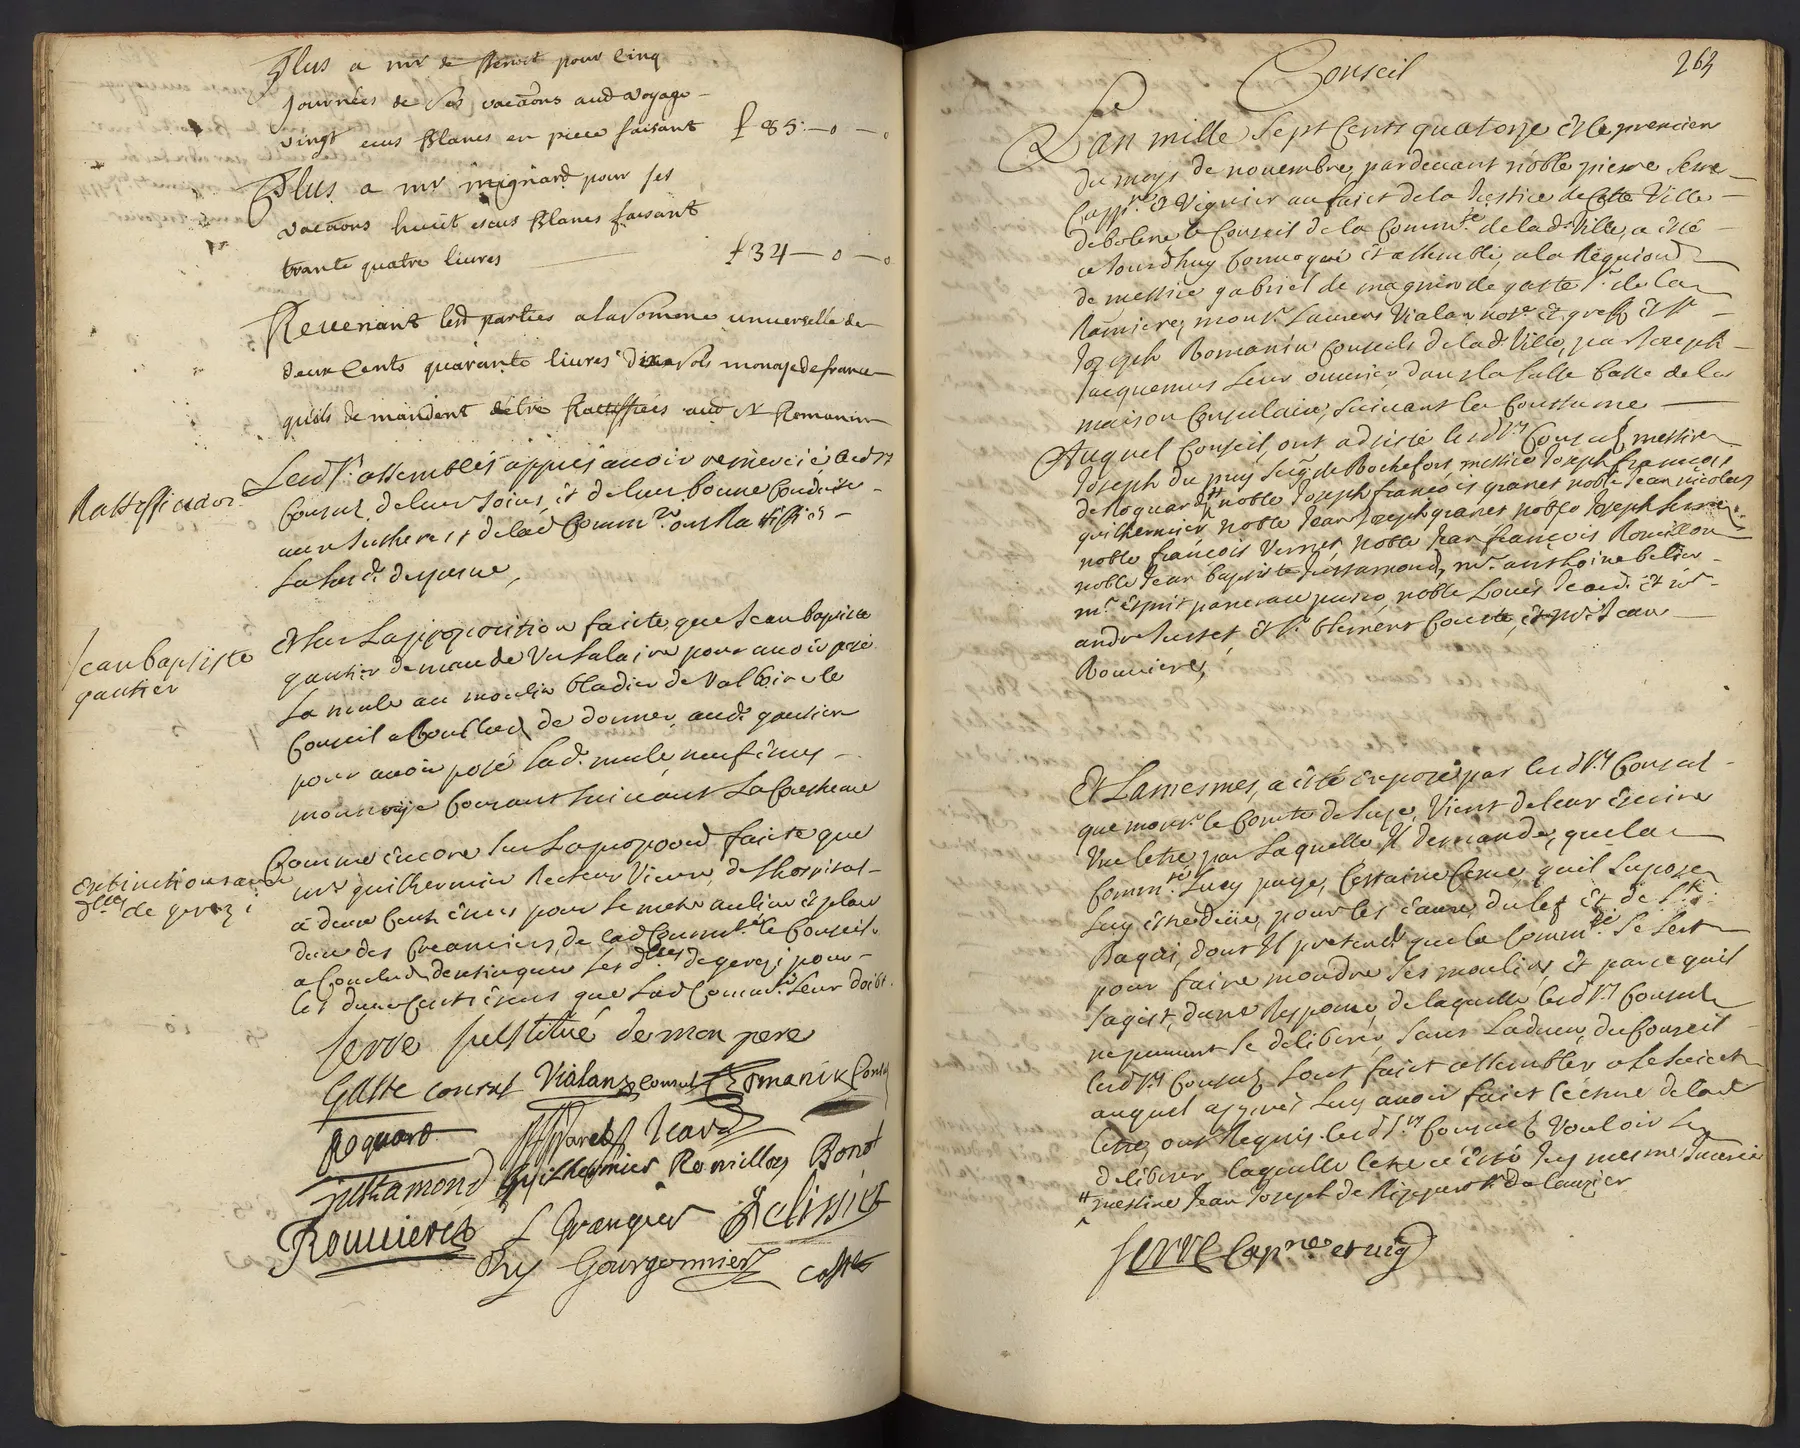 Plus a mr de Benoit pour Cinq
Journées de ses vacãons aud voyage
vingt ecus blancs en piece faisant ₶ 85 — 0 — 0
Plus a mr mignard pour ses
vacãons huict escus blancs faisant
trante quatre livres ₶ 34 — 0 — 0
Revenant lesd parties a la somme universelle de
deux Cents quarante livres dix sols monoye de france
quils demandent dêtre Rattiffiées aud Sr Romanin
Ratteffication
Lesd Srs assemblés appres avoir remercié lesd Srs
Consuls de leur soins, et de leur bonne Conduite
aux de lad Commté ont Rattiffié
la susd.
Jean baptiste
gautier
Et sur la proposition faicte, que Jean baptiste
gautier demande un salaire pour avoir posé
la mule au moulin bladier de le
Conseil a Conclud de donner aud. gautier
pour avoir posé lad. mule neuf écus
monnoye Courant suivant la Coustume
Extinction
dlles de gerezi
Comme encore sur la proposõn faicte que
mr guilhermier Recteur vieux de lhospital
a deux Cents écus pour le mettre au lieu et place
dun des Creanciers de lad Commté le Conseil
a Conclud les dlles de gerezi pour
les deux Cents écus que lad Commté leur doibt
Serre substitué de mon pere
Gaste consul Vialans consul Romanin Consul
Roquard Icard
justamond Guilhermier Romillon Bonot
Rouvieres L Granger Pelissier
Rey Gourgonnier coste
263
Conseil
L'an mille sept Cents quatorze et le premier
du moys de novembre, pardevant noble pierre serre
Cappne et Viguier au faict de la Justice de Cette Ville
de bolene le Conseil de la Commté de lad. Ville, a été
ce Jourdhuy Convoqué et assemblé, a la Requiõn
de messire gabriel de magnin de gaste Sr de la
Ramiere, monsr. Laurens Vialan not. et greff et Sr
Joseph Romanin Consuls de lad. Ville, par Joseph
Jacquemus leur ouvrier, dans la salle basse de la
maison Consulaire, suivant la Coustume
Auquel Conseil, ont adsisté lesd Srs Consuls, messire
Joseph du puy Seigr de Rochefort messire Joseph françois
de Roquard, noble Joseph françois granet noble Jean nicolas
guilhermier noble Jean Joseph granet noble Joseph serre
noble françois Vernet noble Jean françois Romillon
noble Jean baptiste Justamond, mr. anthoine belier
mr. esprit noble Louis Icard. et mr.
andre Jusset, et Sr. Clement Coste, et Jean
Rouviere,
Et la mesmes, a été exposé par lesd Srs Consuls
que monsr. le Comte de Suze, vient de leur écrire
une letre, par laquelle Il demande, que la
Commté. Luy paye, Certaine Cence quil supose
Luy estre deüe, pour les eaux, du les et de St.
Bagas, dont Il pretend que la Commté. se sert
pour faire moudre ses moulins, et parce quil
sagist, dune Response, de laquelle lesd Srs Consuls
ne peuvent se deliberer, sans ladveu, du Conseil
lesd Srs Consuls l'ont faict assembler a ce subiect
auquel appres luy avoir faict lecture de lad
letre, ont Requis lesd Srs Conseils, vouloir y
deliberer laquelle letre a été Icy mesme Inserée
messire Jean Joseph de Ripert Sr. de lauzier
Serre Capne et vig